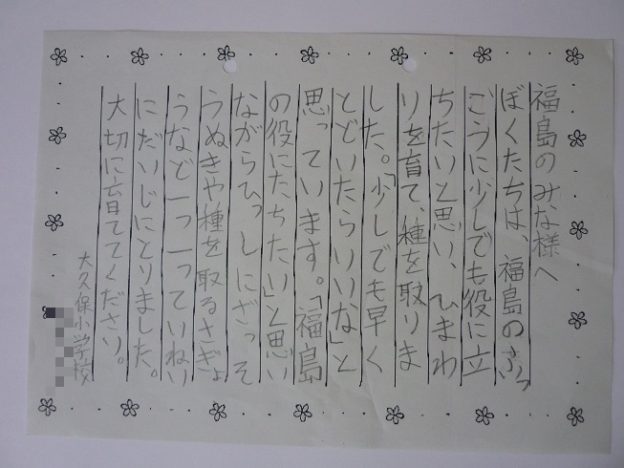 福島のみな様へ
ぼくたちは、福島のふっ
こうに少しでも役に立
ちたいと思い、ひまわ
りを育て、種を取りま
した。「少しでも早く
とどいたらいいな」と
思っています。「福島
の役にたちたい」と思い
ながらひっしにざっそ
うぬきや種を取るさぎょ
うなど一つ一つていねい
にだいじにとりました。
大切に育ててください。
大久保小学校